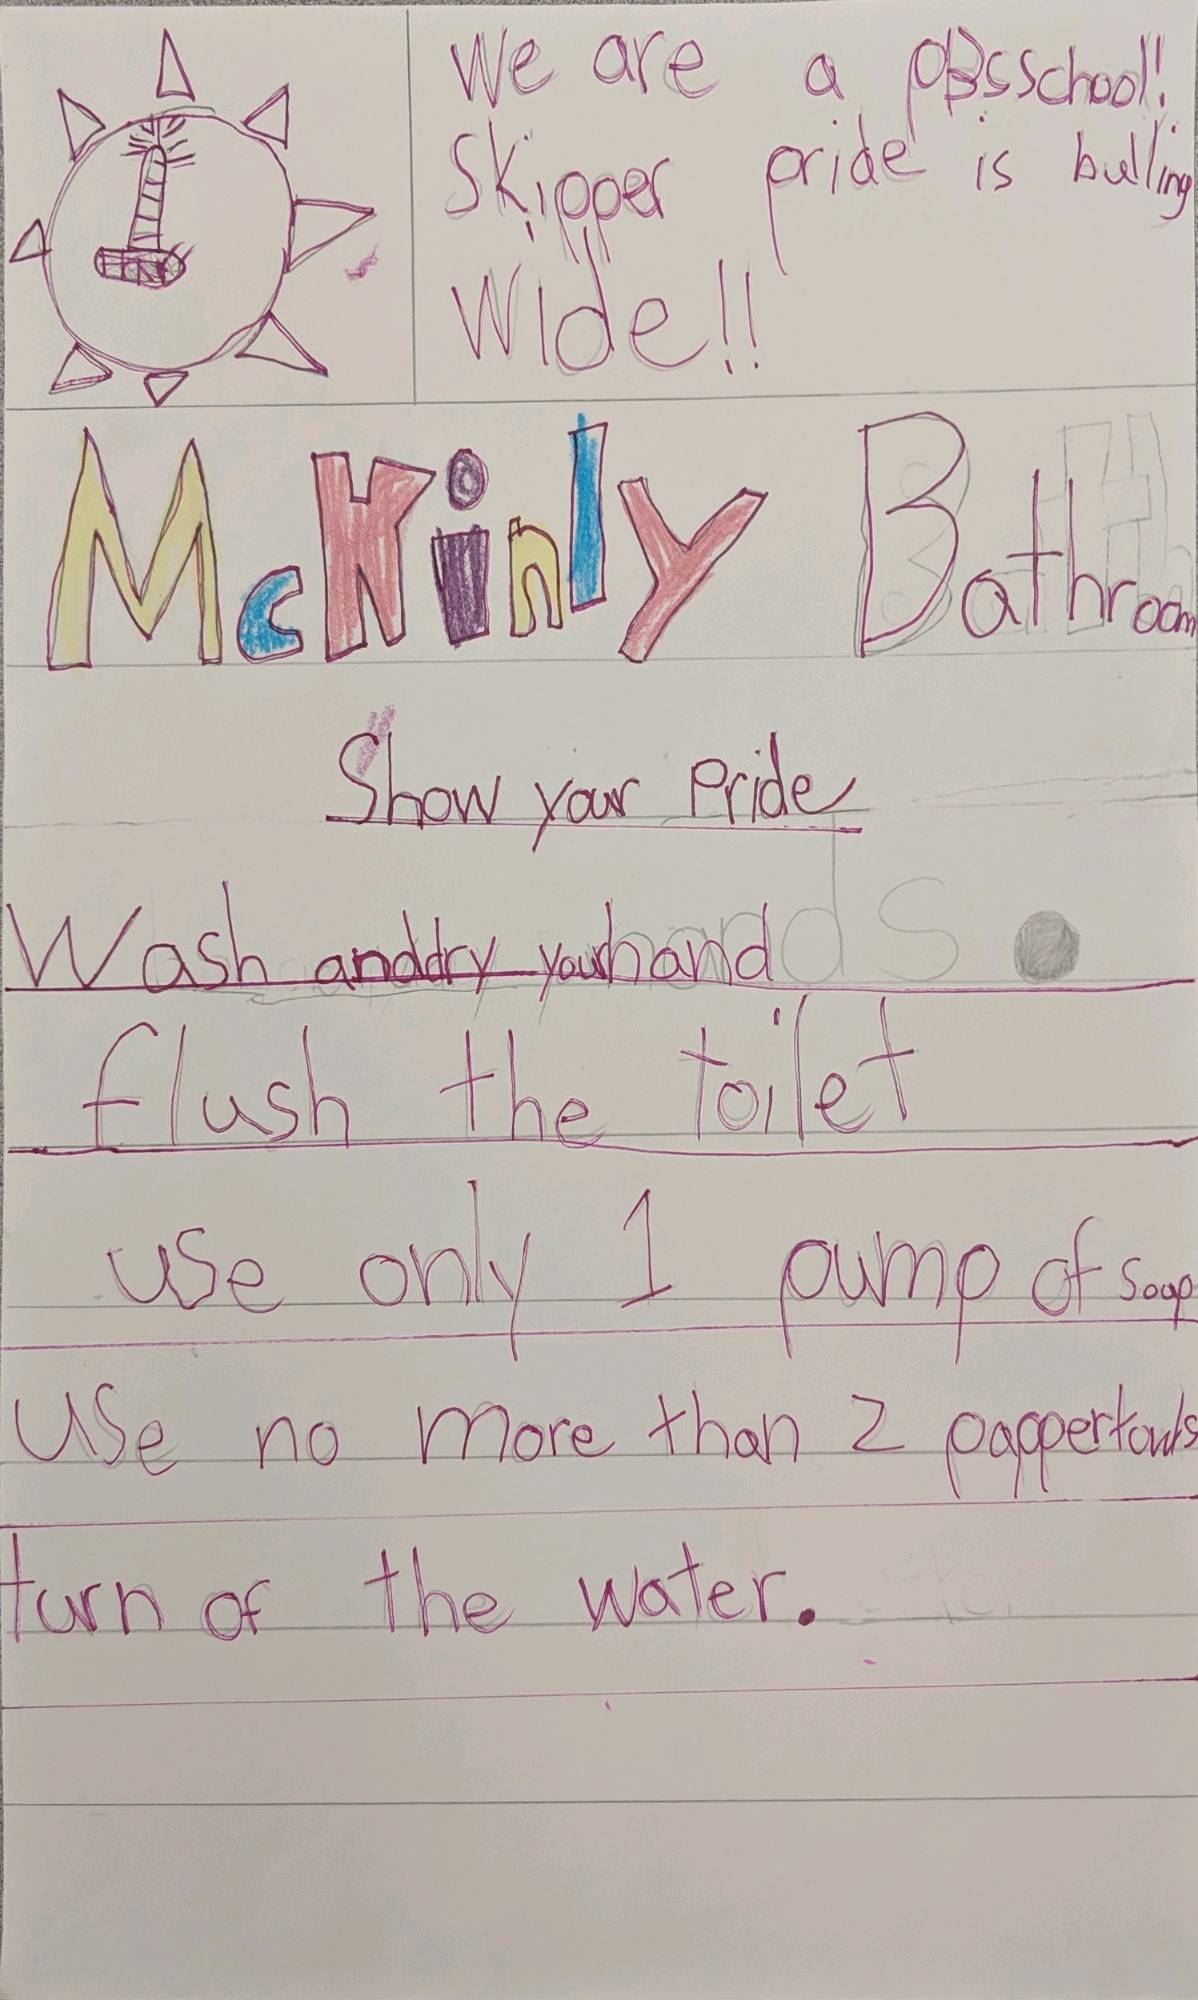 We are a pBsschool!
Skipper pride is bulling
Wide!!
McKinly Bathroom
Show your Pride
Wash anddry yourhands.
flush the toilet
use only 1 pump of soap
Use no more than 2 pappertowls
turn of the water.